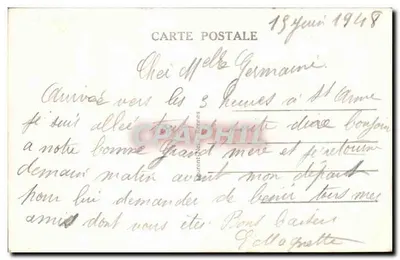 19 Juin 1948
CARTE POSTALE
Chei Melle Germaine.
Arrivée vers les 3 heures à St Anne
je suis allée dire bonjour
a notre bonne Grand mère et je retourne
demain matin avant mon départ
pour lui demander de benir tous mes
amis dont vous êtes. Bons baisers